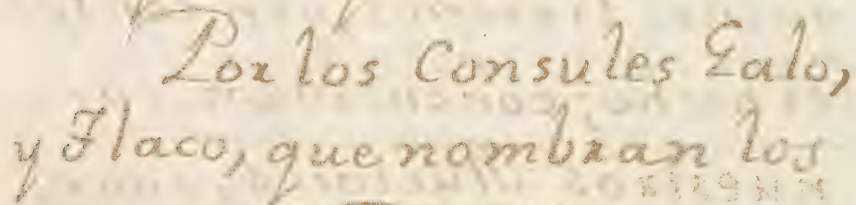 Por los Consules Galo,
y Flaco, que nombran los